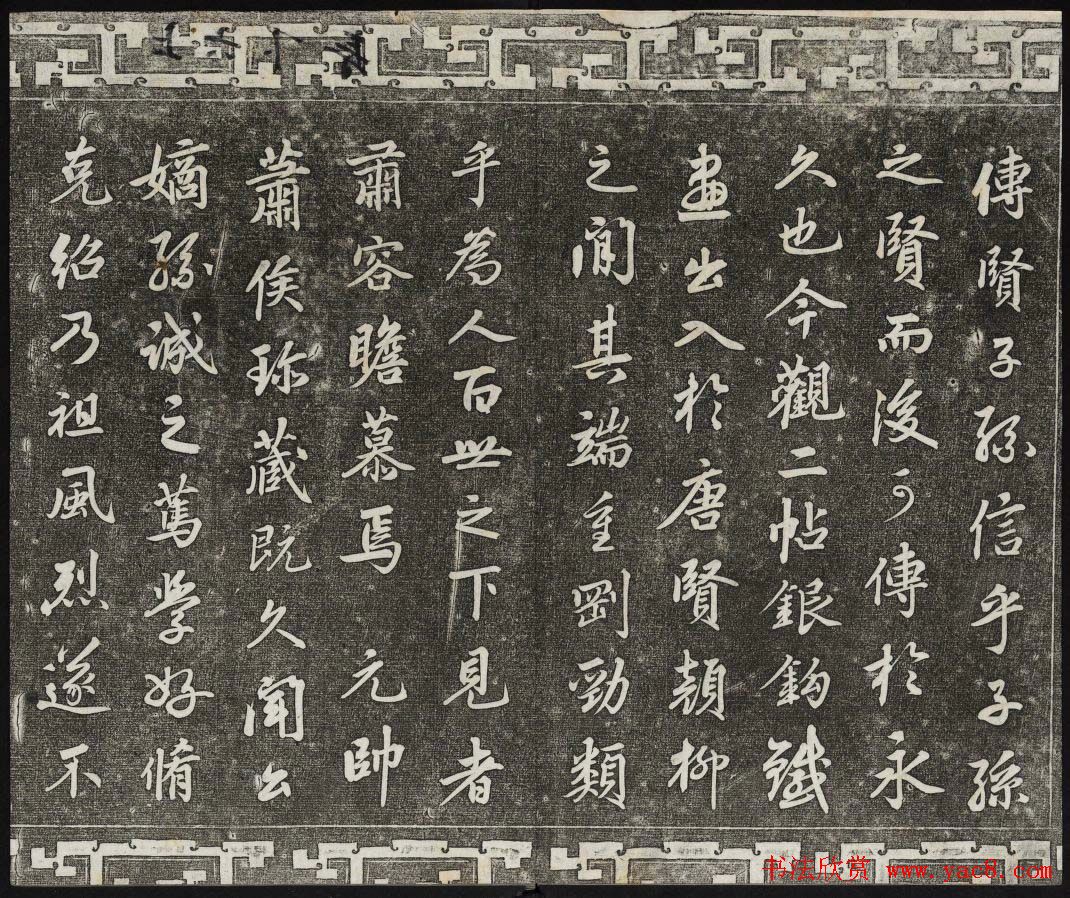 傳賢子孫信乎子孫
之賢而後可傳於永
久也今觀二帖銀鈎鐵
畫出入於唐賢顔柳
之間其端重剛勁類
乎為人百世之下見者
肅容瞻慕焉 元帥
蕭侯珎蔵既久聞公
嫡孫誠之篤学好脩
克紹乃祖風烈遂不
书法欣赏 www.yac8.com